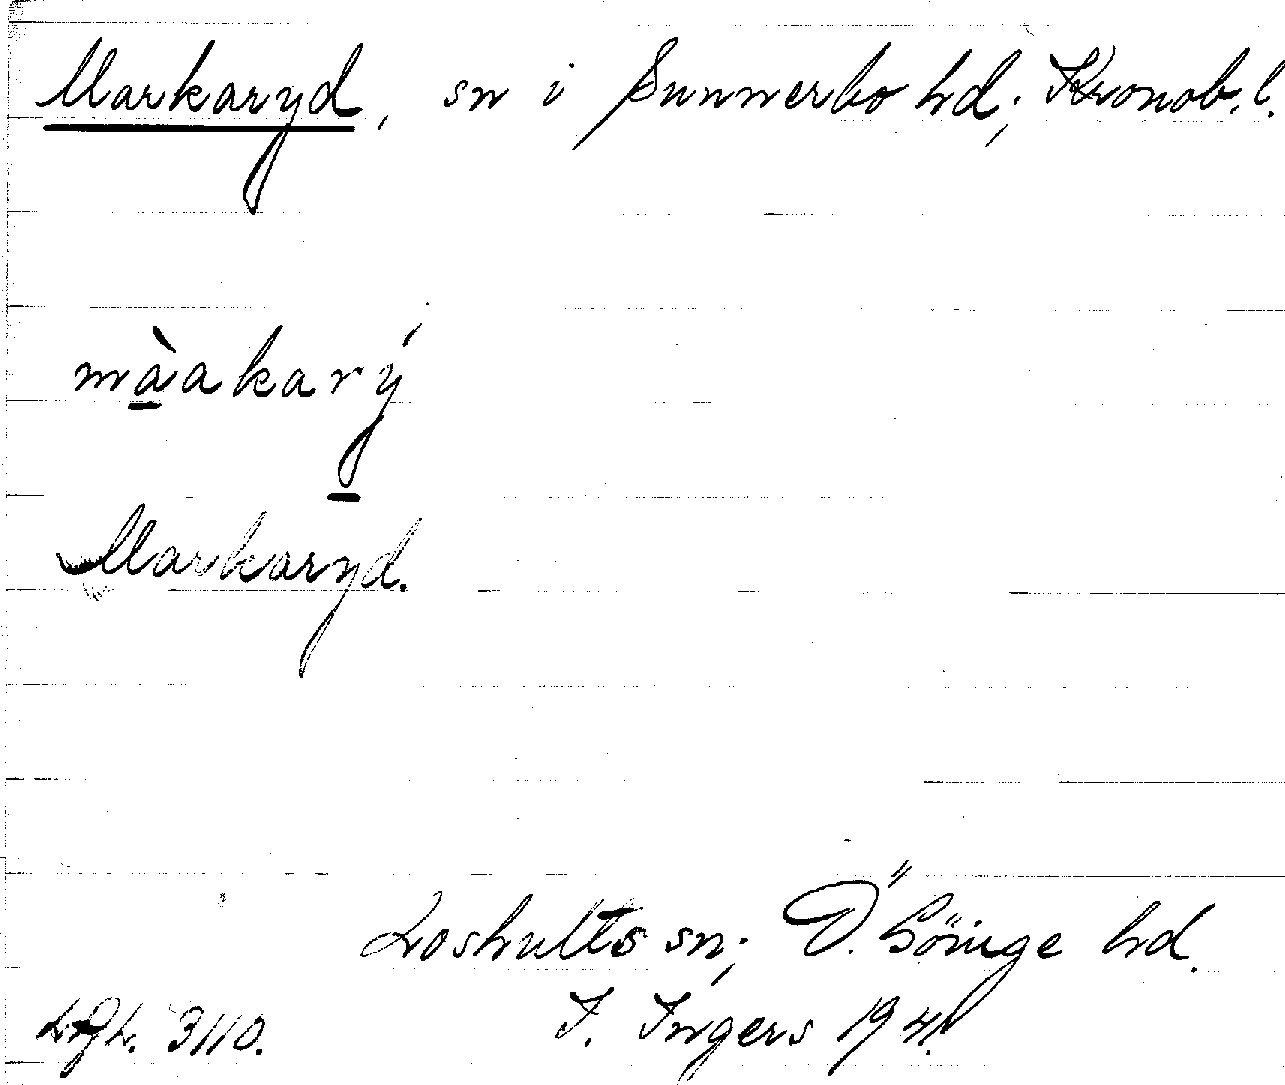 Markaryd, sn i Sunnerbo hd; Kronob. l.
màakarý
Markaryd.
Loshults sn; Ö. Göinge hd.
I. Ingers 1941.
3110.